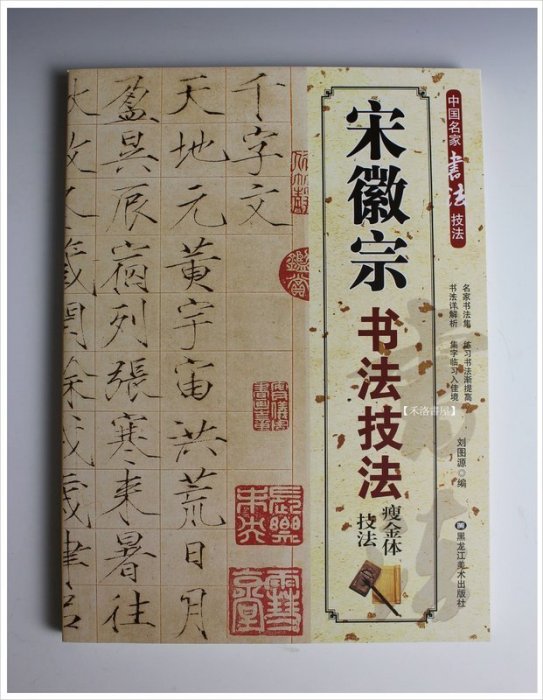 中国名家书法技法
宋徽宗
书法技法
瘦金体
技法
名家书法集 练习书法渐提高
书法详解析 集字临习入佳境
刘图源 编
黑龙江美术出版社
【禾洛書屋】
千字文
天地元黄宇宙洪荒日月
盈昃辰宿列張寒来暑往
藏閏餘成歲律呂
鑑賞
長樂未央